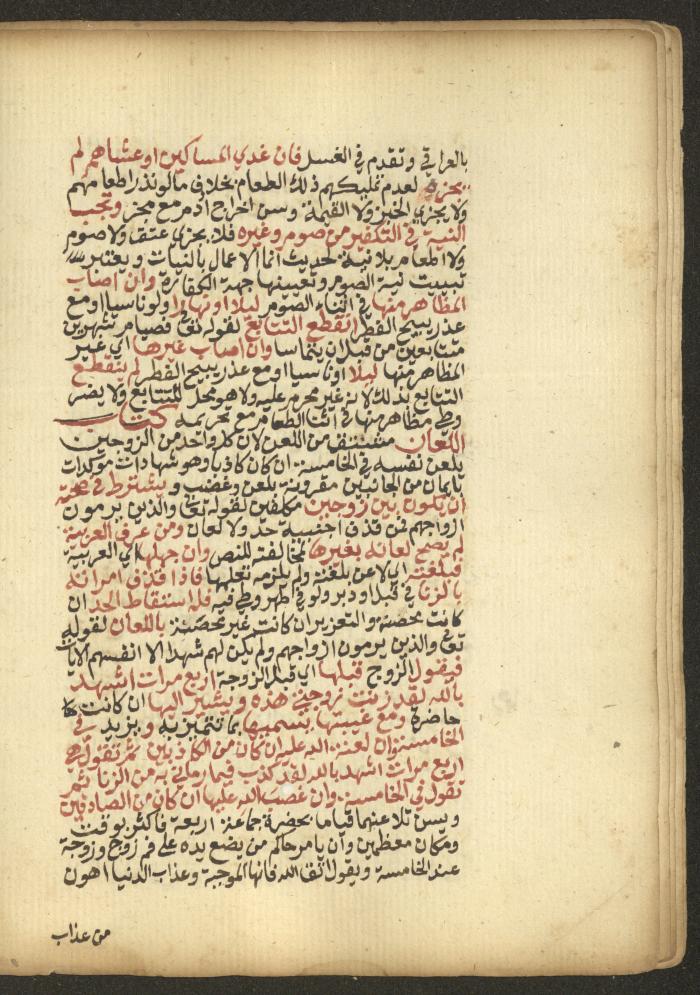 بالعراقي وتقدم في الغسل فان غدي المساكين او عشاهم لم
يجزه لعدم تمليكهم ذلك الطعام بخلاف مالو نذر اطعامهم
ولا يجزي الخبز ولا القيمة وسن اخراج ادم مع مجز وتجب
النية في التكفير من صوم وغيره فلا يجزي عتق ولا صوم
ولا اطعام بلا نية لحديث انما الاعمال بالنيات ويعتبر
تبييت نية الصوم وتعيينها جهة الكفارة وان اصاب
المظاهر منها في اثناء الصوم ليلا او نهارا ولو ناسيا او مع
عذر يبيح الفطر انقطع التتابع لقوله تعالى فصيام شهرين
متتابعين من قبل ان يتماسا وان اصاب غيرها اي غير
المظاهر منها ليلا او ناسيا او مع عذر يبيح الفطر لم ينقطع
التتابع بذلك لانه غير محرم عليه ولا هو محل للتتابع ولا يضر
وطي مظاهر منها في اثنا الطعام مع تحريمه كتاب
اللعان مشتق من اللعن لان كل واحد من الزوجين
يلعن نفسه في الخامسة ان كان كاذبا وهو شهادات موكدات
بايمان من الجانبين مقرونة بلعن وغضب ويشترط في صحته
ان يكون بين زوجين مكلفين لقوله تعالى والذين يرمون
ازواجهم فمن قذف اجنبية حد ولا لعان ومن عرف العربية
لم يصح لعانه بغيرها لمخالفته للنص وان جهلها اي العربية
فبلغته اي لاعن بلغته ولم يلزمه تعلمها فاذا قذف امراته
بالزنا في قبل او دبر ولو في طهر وطي فيه فله اسقاط الحد ان
كانت محصنة والتعزير ان كانت غير محصنة باللعان لقوله
تعالى والذين يرمون ازواجهم ولم يكن لهم شهدا الا انفسهم الايات
فيقول الزوج قبلها اي قبل الزوجة اربع مرات اشهد
بالله لقد زنت زوجتي هذه ويشير اليها ان كانت
حاضرة ومع غيبتها يسميها بما تتميز به ويزيد في
الخامسة وان لعنة الله عليه ان كان من الكاذبين ثم تقول هي
اربع مرات اشهد بالله لقد كذب فيما رماني به من الزنا ثم
تقول في الخامسة وان غضب الله عليها ان كان من الصادقين
ويسن تلاعنهما قياما بحضرة جماعة اربعة فاكثر بوقت
ومكان معظمين وان يامر حاكم من يضع يده على فم زوج وزوجة
عند الخامسة ويقول اتق الله فانها الموجبة وعذاب الدنيا اهون
من عذاب